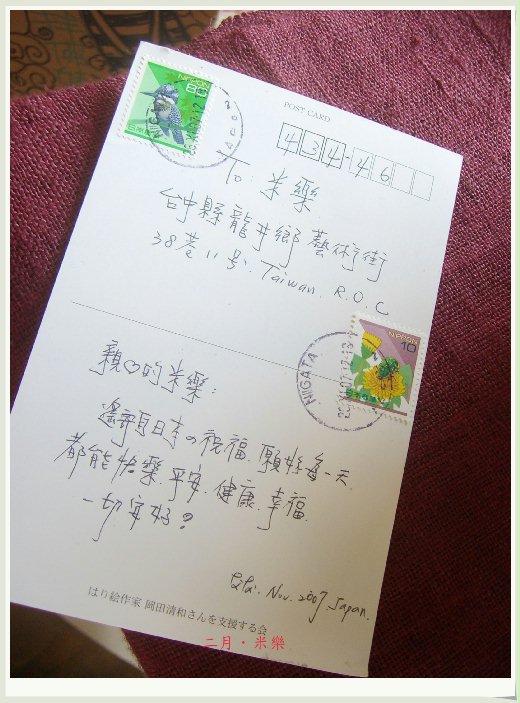 NIPPON
80
POST CARD
434-46
To 米樂
台中縣龍井鄉藝術街
38巷11号. Taiwan. R.O.C
NIPPON
10
NIIGATA
親♡的米樂:
遙寄自日本の祝福. 願妳每一天
都能快樂. 平安. 健康. 幸福.
一切安好?
Nov. 2007. Japan.
はり絵作家 岡田清和さんを支援する会
二月・米樂